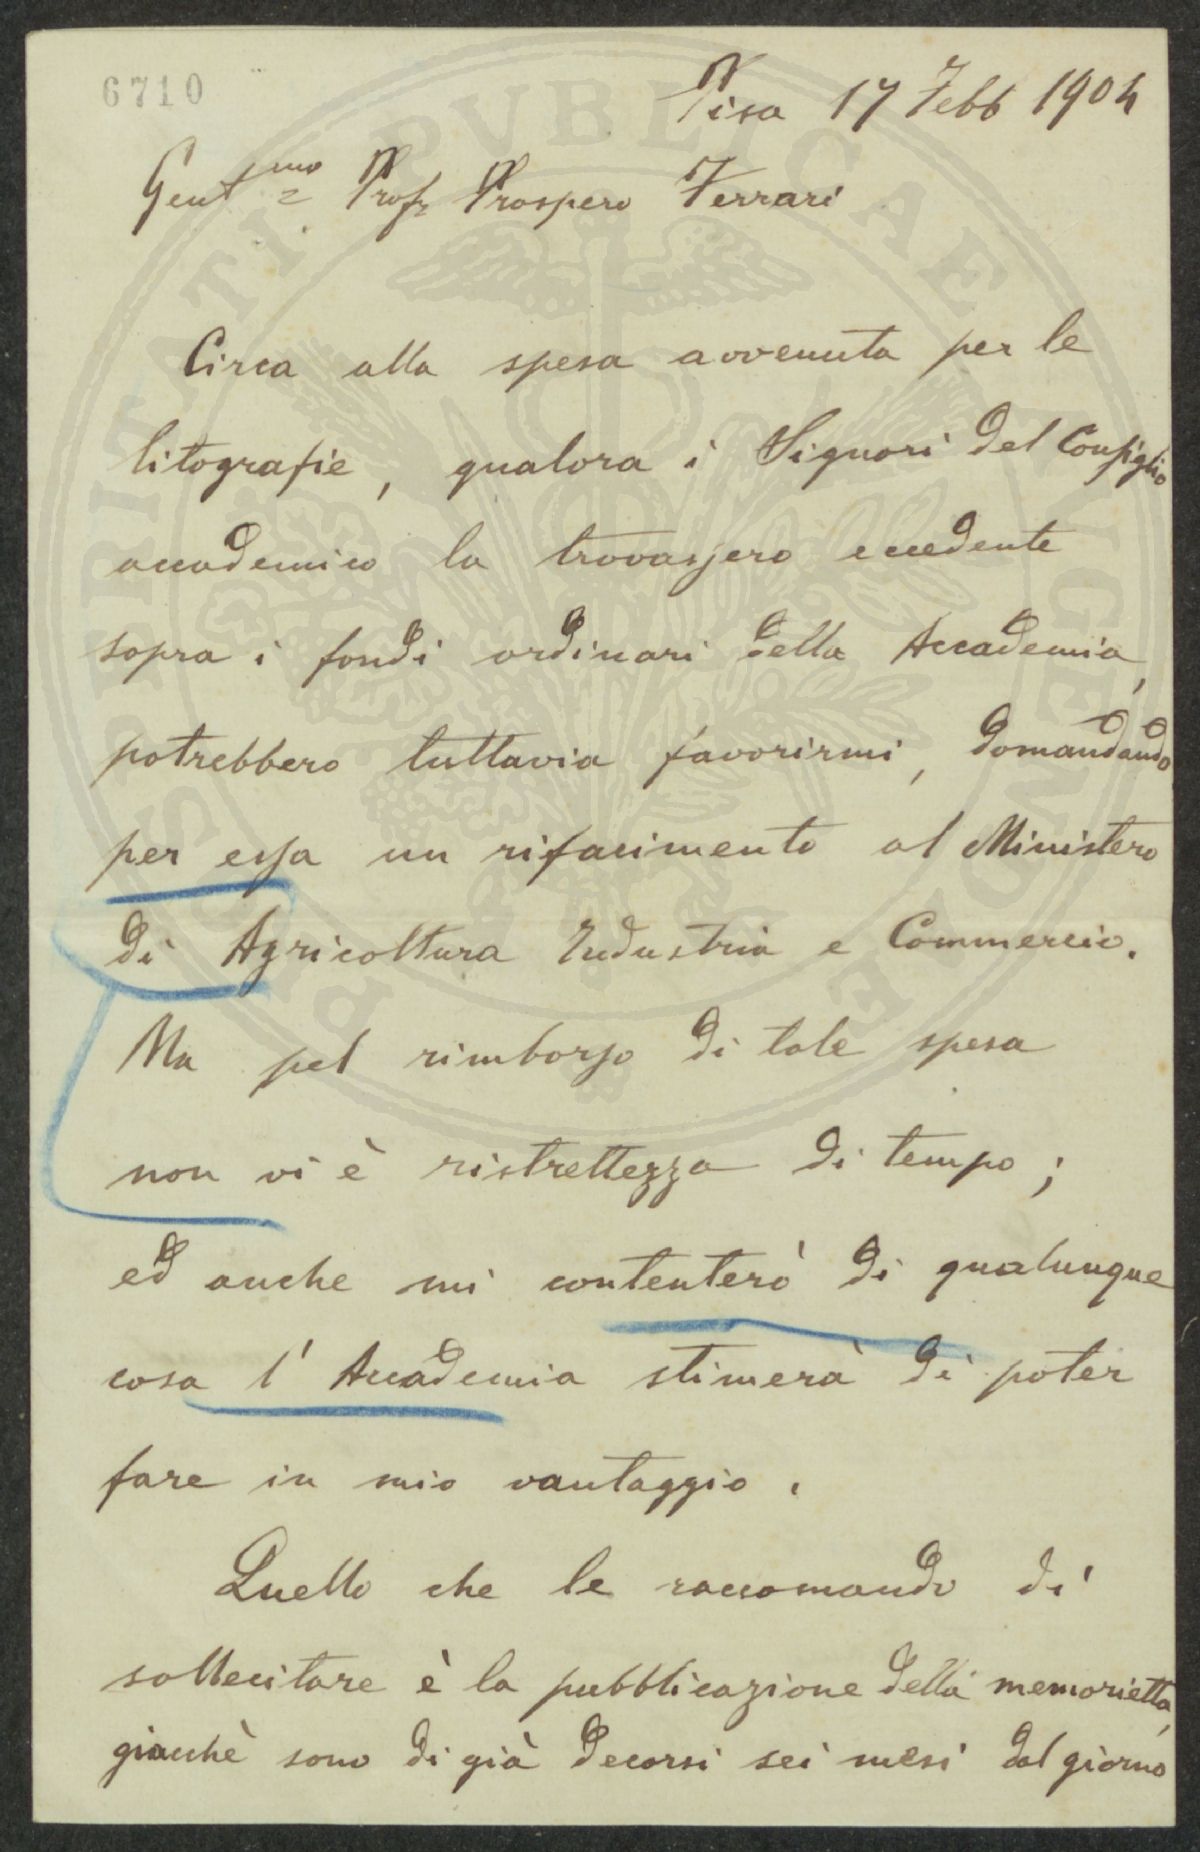 6710
Pisa 17 Febb 1904
Gent.mo Profr Prospero Ferrari
Circa alla spesa avvenuta per le
litografie, qualora i Signori del Consiglio
accademico la trovassero eccedente
sopra i fondi ordinari della Accademia,
potrebbero tuttavia favorirmi, domandando
per essa un rifacimento al Ministero
di Agricoltura Industria e Commercio.
Ma pel rimborso di tale spesa
non vi è ristrettezza di tempo;
ed anche mi contenterò di qualunque
cosa l'Accademia stimerà di poter
fare in mio vantaggio.
Quello che le raccomando di
sollecitare è la pubblicazione della memorietta,
giacchè sono di già decorsi sei mesi dal giorno
PROSPERITATI PVBLICAE AVGENDAE